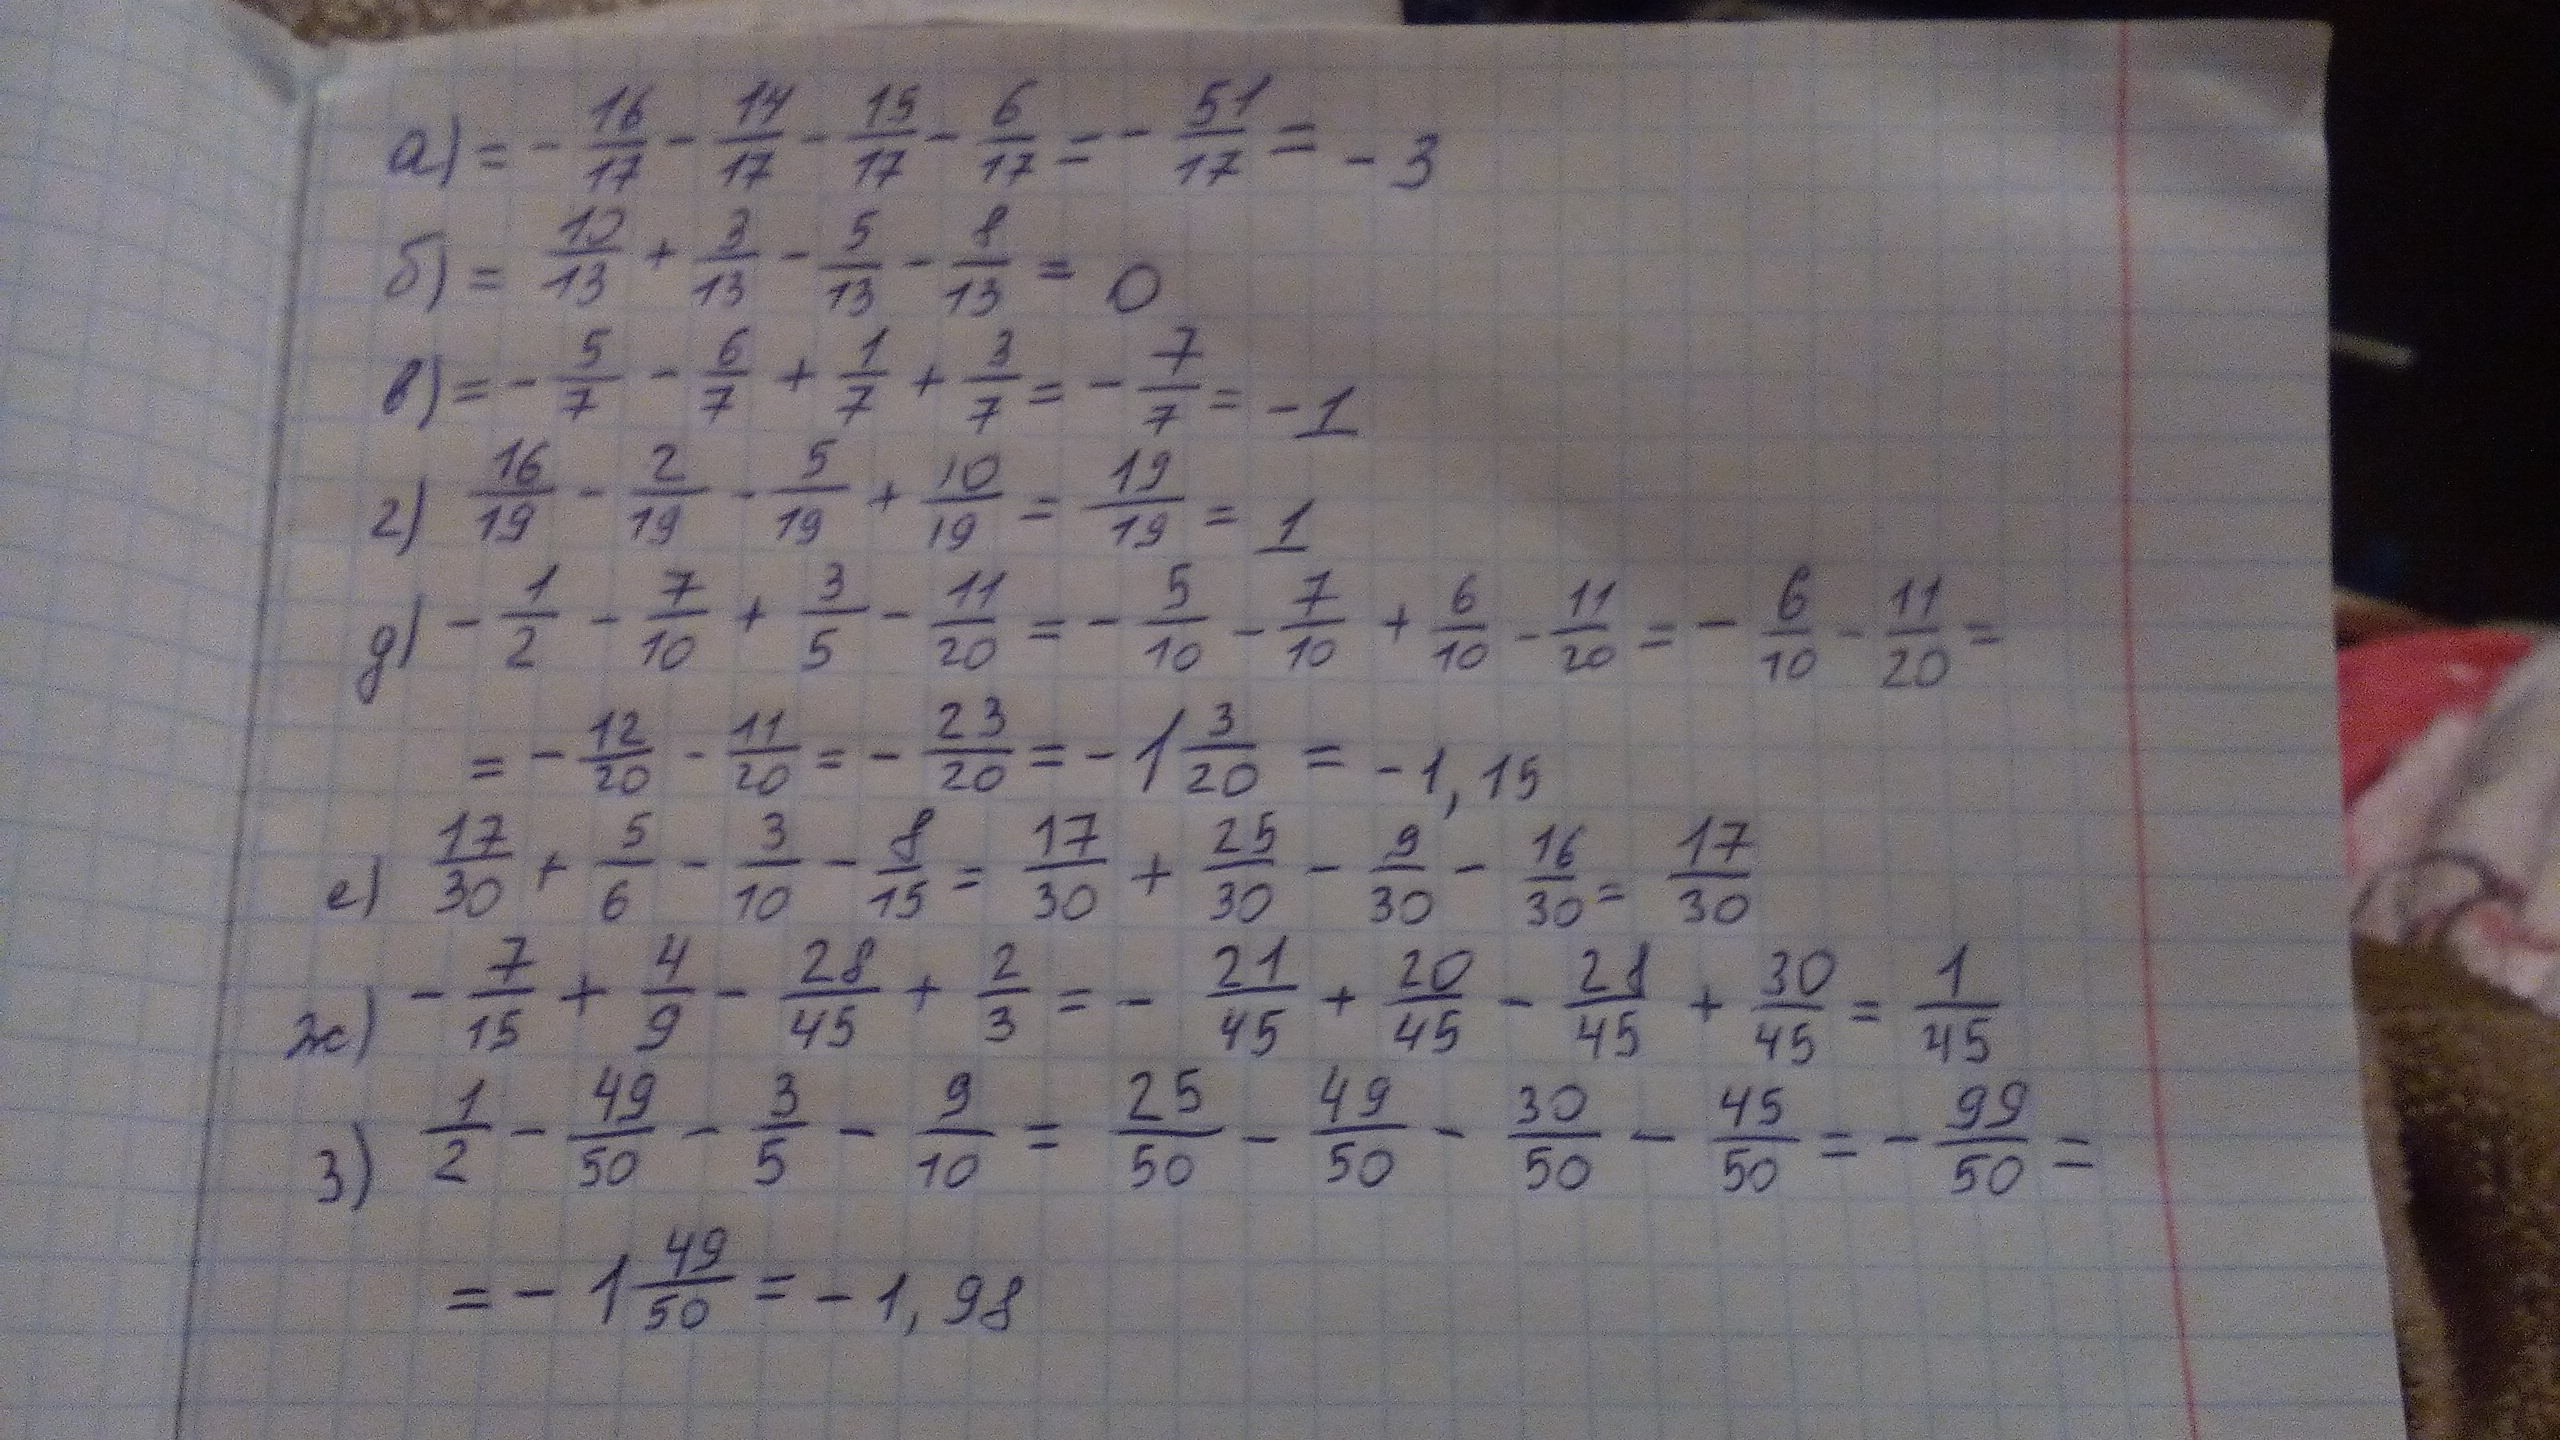 а) = - 16/17 - 14/17 - 15/17 - 6/17 = - 51/17 = - 3
б) = 10/13 + 3/13 - 5/13 - 8/13 = 0
в) = - 5/7 - 6/7 + 1/7 + 3/7 = - 7/7 = - 1
г) 16/19 - 2/19 - 5/19 + 10/19 = 19/19 = 1
д) - 1/2 - 7/10 + 3/5 - 11/20 = - 5/10 - 7/10 + 6/10 - 11/20 = - 6/10 - 11/20 =
= - 12/20 - 11/20 = - 23/20 = - 1 3/20 = - 1,15
е) 17/30 + 5/6 - 3/10 - 8/15 = 17/30 + 25/30 - 9/30 - 16/30 = 17/30
ж) - 7/15 + 4/9 - 28/45 + 2/3 = - 21/45 + 20/45 - 28/45 + 30/45 = 1/45
з) 1/2 - 49/50 - 3/5 - 9/10 = 25/50 - 49/50 - 30/50 - 45/50 = - 99/50 =
= - 1 49/50 = - 1,98